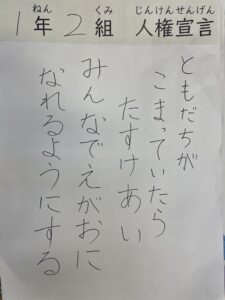 1年2組 人権宣言
ねん くみ じんけんせんげん
ともだちが
こまっていたら
たすけあい
みんなでえがおに
なれるようにする